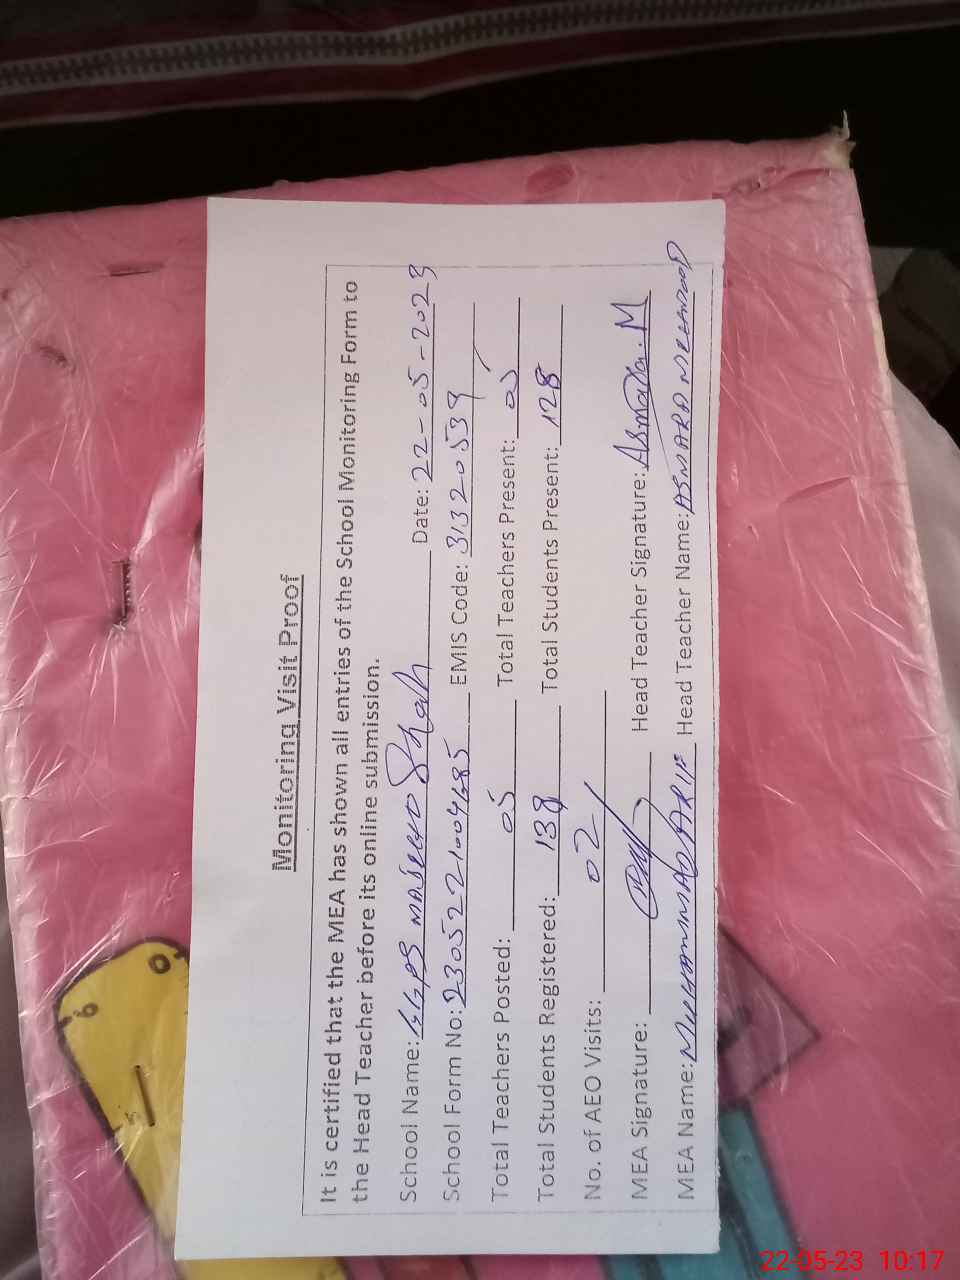 Monitoring Visit Proof
It is certified that the MEA has shown all entries of the School Monitoring Form to
the Head Teacher before its online submission.
School Name: GGPS MASEHO Shah Date: 22-05-2023
School Form No: 2305221004685 EMIS Code: 31320539
Total Teachers Posted: 05 Total Teachers Present: 05
Total Students Registered: 138 Total Students Present: 128
No. of AEO Visits: 02
MEA Signature: Head Teacher Signature: Asmada.M
MEA Name: MUHAMMAD ARIF Head Teacher Name: ASMADA MEHMOOD
22-05-23 10:17